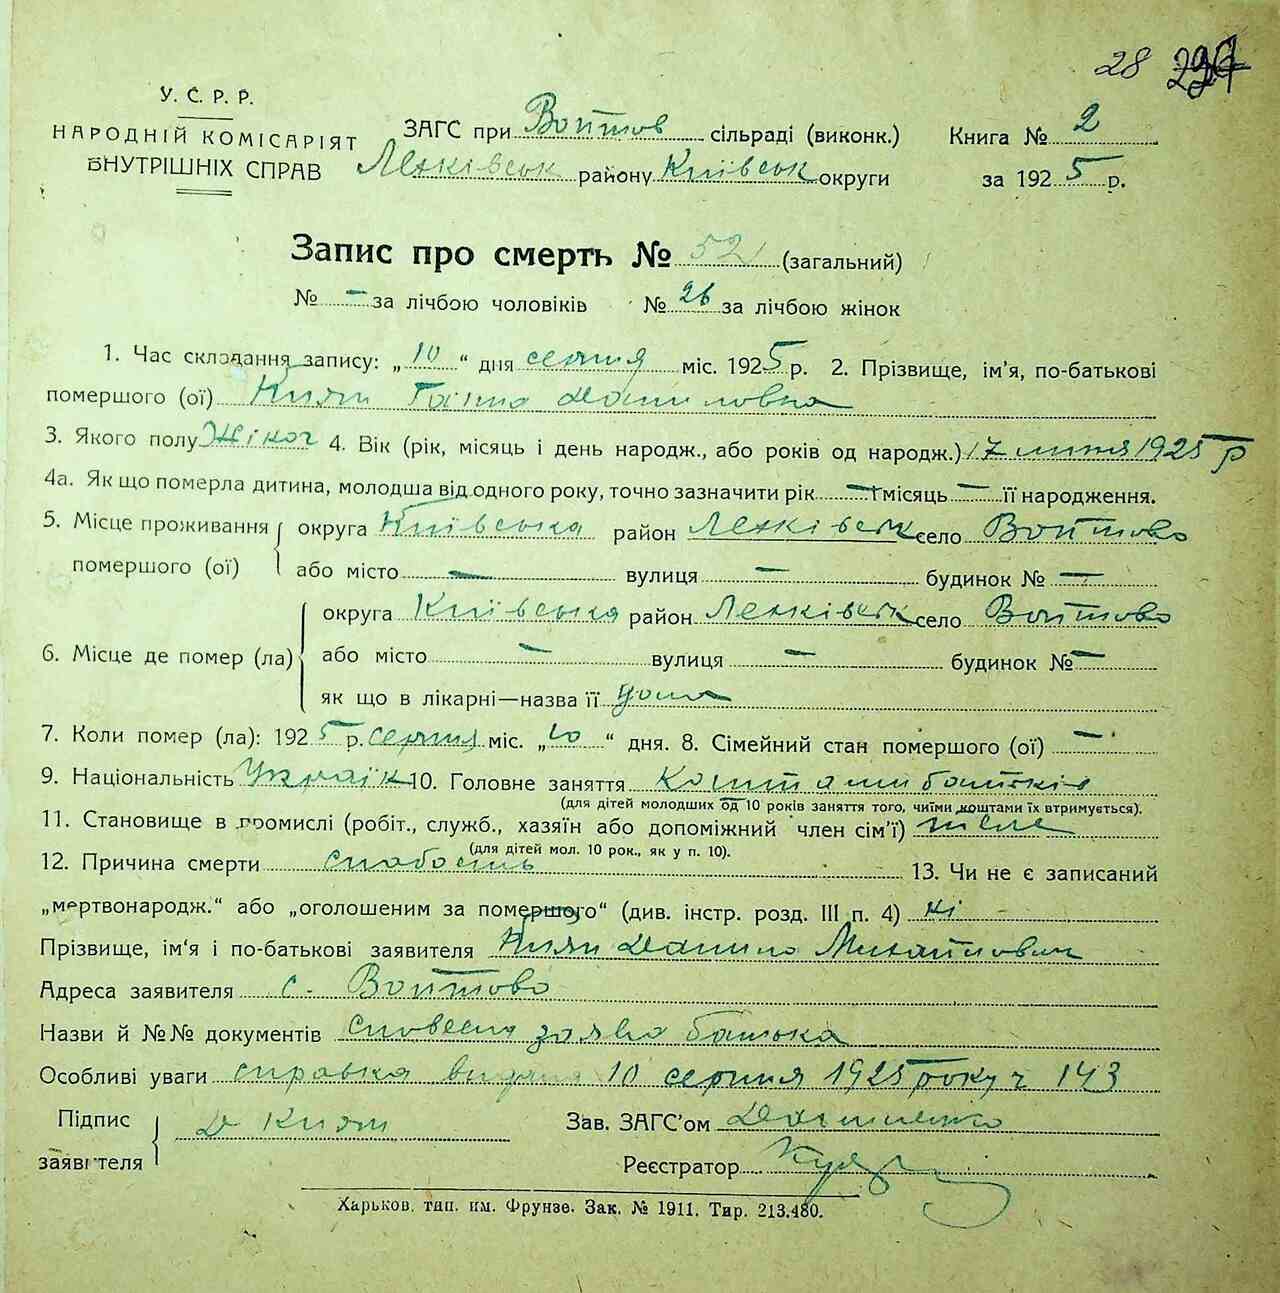 28
У. С. Р. Р.
НАРОДНІЙ КОМІСАРІЯТ
ВНУТРІШНІХ СПРАВ
ЗАГС при Войтов сільраді (виконк.) Книга № 2
району Київськ округи за 1925 р.
Запис про смерть № 52 (загальний)
№ - за лічбою чоловіків № 26 за лічбою жінок
1. Час складання запису: „10“ дня серпня міс. 1925 р. 2. Прізвище, ім'я, по-батькові
помершого (ої) Киян Ганна Даниловна
3. Якого полу Жіноч 4. Вік (рік, місяць і день народж., або років од народж.) 17 липня 1925 р
4а. Як що померла дитина, молодша від одного року, точно зазначити рік - місяць - її народження.
5. Місце проживання помершого (ої) округа Київська район село Войтово
або місто - вулиця - будинок № -
6. Місце де помер (ла) округа Київська район село Войтово
або місто - вулиця - будинок № -
як що в лікарні—назва її дома
7. Коли помер (ла): 1925 р. серпня міс. „10“ дня. 8. Сімейний стан помершого (ої) -
9. Національність Україн 10. Головне заняття Коштами батьків
(для дітей молодших од 10 років заняття того, чиїми коштами їх втримується).
11. Становище в промислі (робіт., служб., хазяїн або допоміжний член сім'ї)
(для дітей мол. 10 рок., як у п. 10).
12. Причина смерти слабость 13. Чи не є записаний
„мертвонародж.“ або „оголошеним за помершого“ (див. інстр. розд. III п. 4) ні
Прізвище, ім'я і по-батькові заявителя Киян Данило Михайлович
Адреса заявителя с. Войтово
Назви й №№ документів словесна заява батька
Особливі уваги справка видана 10 серпня 1925 року ч 143
Підпис заявителя Д Киян Зав. ЗАГС'ом
Реєстратор
Харьков. тип. им. Фрунзе. Зак. № 1911. Тир. 213.480.